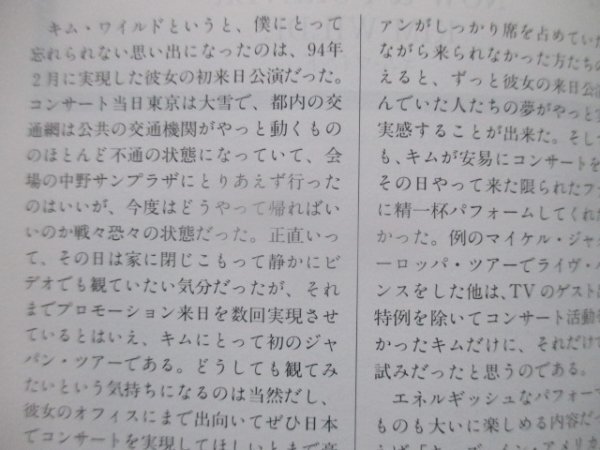 キム・ワイルドというと、僕にとって
忘れられない思い出になったのは、94年
2月に実現した彼女の初来日公演だった。
コンサート当日東京は大雪で、都内の交
通網は公共の交通機関がやっと動くもの
のほとんど不通の状態になっていて、会
場の中野サンプラザにとりあえず行った
のはいいが、今度はどうやって帰ればい
いのか戦々恐々の状態だった。正直いっ
て、その日は家に閉じこもって静かにビ
デオでも観ていたい気分だったが、それ
までプロモーション来日を数回実現させ
ているとはいえ、キムにとって初のジャ
パン・ツアーである。どうしても観てみ
たいという気持ちになるのは当然だし、
彼女のオフィスにまで出向いてぜひ日本
でコンサートを実現してほしいとまで
アンがしっかり席を占めていた
ながら来られなかった方たちの
えると、ずっと彼女の来日公演
んでいた人たちの夢がやっと実
実感することが出来た。そし
も、キムが安易にコンサートを
その日やって来た限られたフ
に精一杯パフォームしてくれた
かった。例のマイケル・ジャ
ーロッパ・ツアーでライヴ・
ンスをした他は、TVのゲスト
特例を除いてコンサート活動
かったキムだけに、それだけ
試みだったと思うのである。
エネルギッシュなパフォー
ものも大いに楽しめる内容だっ